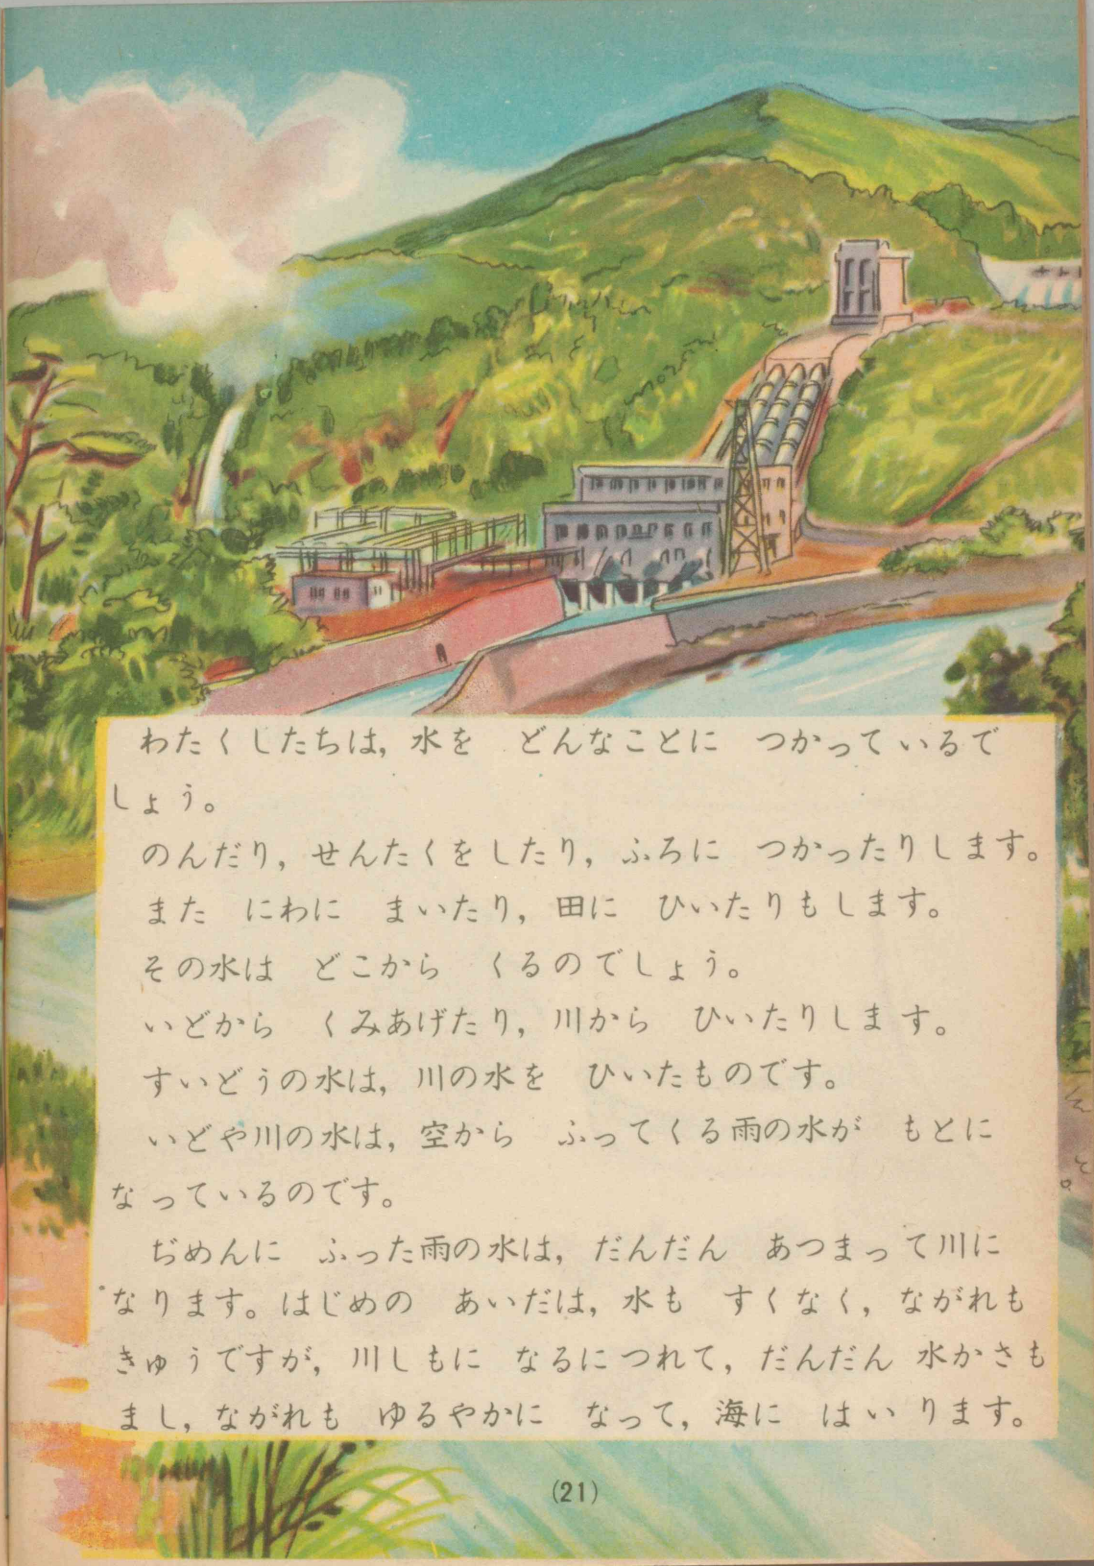 わたくしたちは，水を　どんなことに　つかっているで
しょう。
のんだり，せんたくをしたり，ふろに　つかったりします。
また　にわに　まいたり，田に　ひいたりもします。
その水は　どこから　くるのでしょう。
いどから　くみあげたり，川から　ひいたりします。
すいどうの水は，川の水を　ひいたものです。
いどや川の水は，空から　ふってくる雨の水が　もとに
なっているのです。
ぢめんに　ふった雨の水は，だんだん　あつまって川に
なります。はじめの　あいだは，水も　すくなく，ながれも
きゅうですが，川しもに　なるにつれて，だんだん　水かさも
まし，ながれも　ゆるやかに　なって，海に　はいります。
(21)